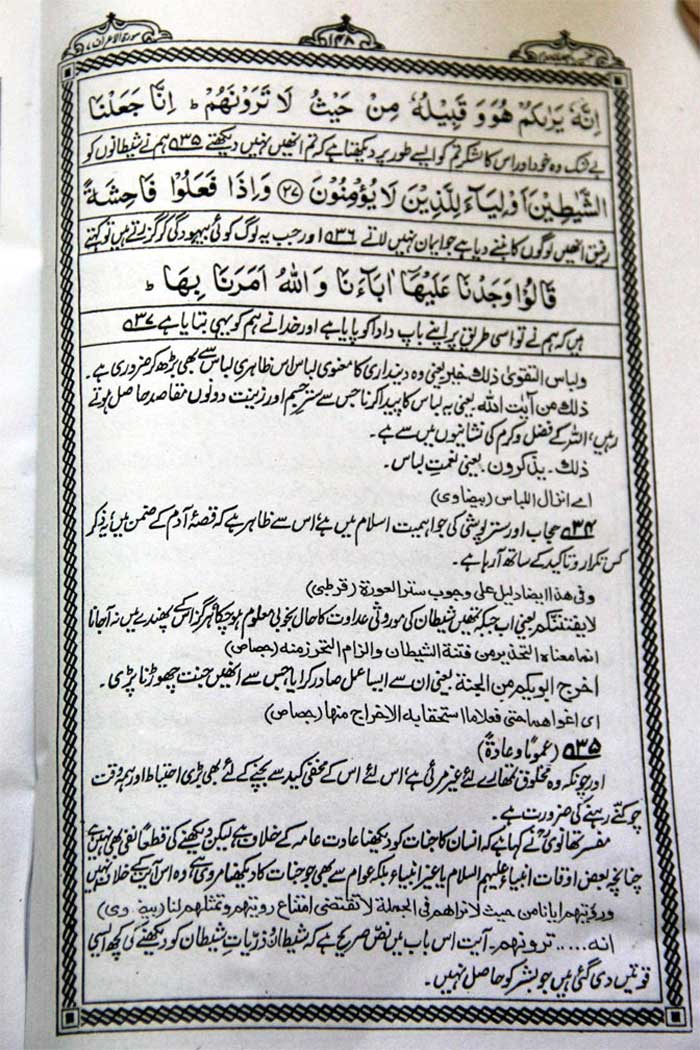 سورۃ الاعراف ،
۱۴۸
اِنَّهٗ يَرٰىكُمْ هُوَ وَ قَبِيْلُهٗ مِنْ حَيْثُ لَا تَرَوْنَهُمْ ؕ اِنَّا جَعَلْنَا
بے شک وہ خود اور اس کا لشکر تم کو ایسے طور پر دیکھتا ہے کہ تم انھیں نہیں دیکھتے ۵۳۵ ہم نے شیطانوں کو
الشَّيٰطِيْنَ اَوْلِيَآءَ لِلَّذِيْنَ لَا يُؤْمِنُوْنَ ﴿۲۷﴾ وَ اِذَا فَعَلُوْا فَاحِشَةً
رفیق انھیں لوگوں کا بننے دیا ہے جو ایمان نہیں لاتے ۵۳۶ اور جب یہ لوگ کوئی بیہودگی کر گزرتے ہیں تو کہتے
قَالُوْا وَجَدْنَا عَلَيْهَاۤ اٰبَآءَنَا وَ اللّٰهُ اَمَرَنَا بِهَا ؕ
ہیں کہ ہم نے تو اسی طریق پر اپنے باپ دادا کو پایا ہے اور خدا نے ہم کو یہی بتایا ہے ۵۳۷
ولباس التقویٰ ذلك خیر یعنی وہ دینداری کا معنوی لباس اس ظاہری لباس سے بھی بڑھ کر ضروری ہے۔
ذلك من آیت اللہ یعنی یہ لباس کا پیدا کرنا جس سے ستر جسم اور زینت دونوں مقاصد حاصل ہوتے
رہیں، اللہ کے فضل و کرم کی نشانیوں میں سے ہے۔
ذلك ۔ یذکرون ۔ یعنی نعمت لباس۔
اے انزال اللباس (بیضاوی)
۵۳۴ حجاب اور ستر پوشی کی جو اہمیت اسلام میں ہے، اس سے ظاہر ہے کہ قصۂ آدم کے ضمن میں یہ ذکر
کس تکرار و تاکید کے ساتھ آرہا ہے۔
وفی هذا ایضا دلیل علی وجوب ستر العورة (قرطبی)
لا یفتننکم یعنی اب جبکہ تمھیں شیطان کی موروثی عداوت کا حال بخوبی معلوم ہو چکا ہرگز اس کے پھندے میں نہ آجانا
انما معناه التحذیر من فتنة الشیطان والزام التحرز منه (جصاص)
اخرج ابویکم من الجنة یعنی ان سے ایسا عمل صادر کرایا جس سے انھیں جنت چھوڑنا پڑی۔
ای اغواهما حتی فعلا ما استحقا به الاخراج منها (جصاص)
۵۳۵ (عموماً وعادۃً)
اور چونکہ وہ مخلوق تمھارے لئے غیر مرئی ہے، اس لئے اس کے مخفی کید سے بچنے کے لئے بھی بڑی احتیاط اور ہمہ وقت
چوکتے رہنے کی ضرورت ہے۔
مفسر تھانویؒ نے کہا ہے کہ انسان کا جنات کو دیکھنا عادت عامہ کے خلاف ہے لیکن دیکھنے کی قطعاً نفی بھی نہیں ہے
چنانچہ بعض اوقات انبیاء علیہم السلام یا غیر انبیاء بلکہ عوام سے بھی جو جنات کا دیکھنا مروی ہے وہ اس آیت کے خلاف نہیں
ورؤیتهم ایانا من حیث لا نراهم فی الجملة لا تقتضی امتناع رویتهم وتمثلهم لنا (بیضاوی)
انه ..... ترونهم ۔ آیت اس باب میں نص صریح ہے کہ شیطان و ذریات شیطان کو دیکھنے کی کچھ ایسی
قوتیں دی گئی ہیں جو بشر کو حاصل نہیں۔